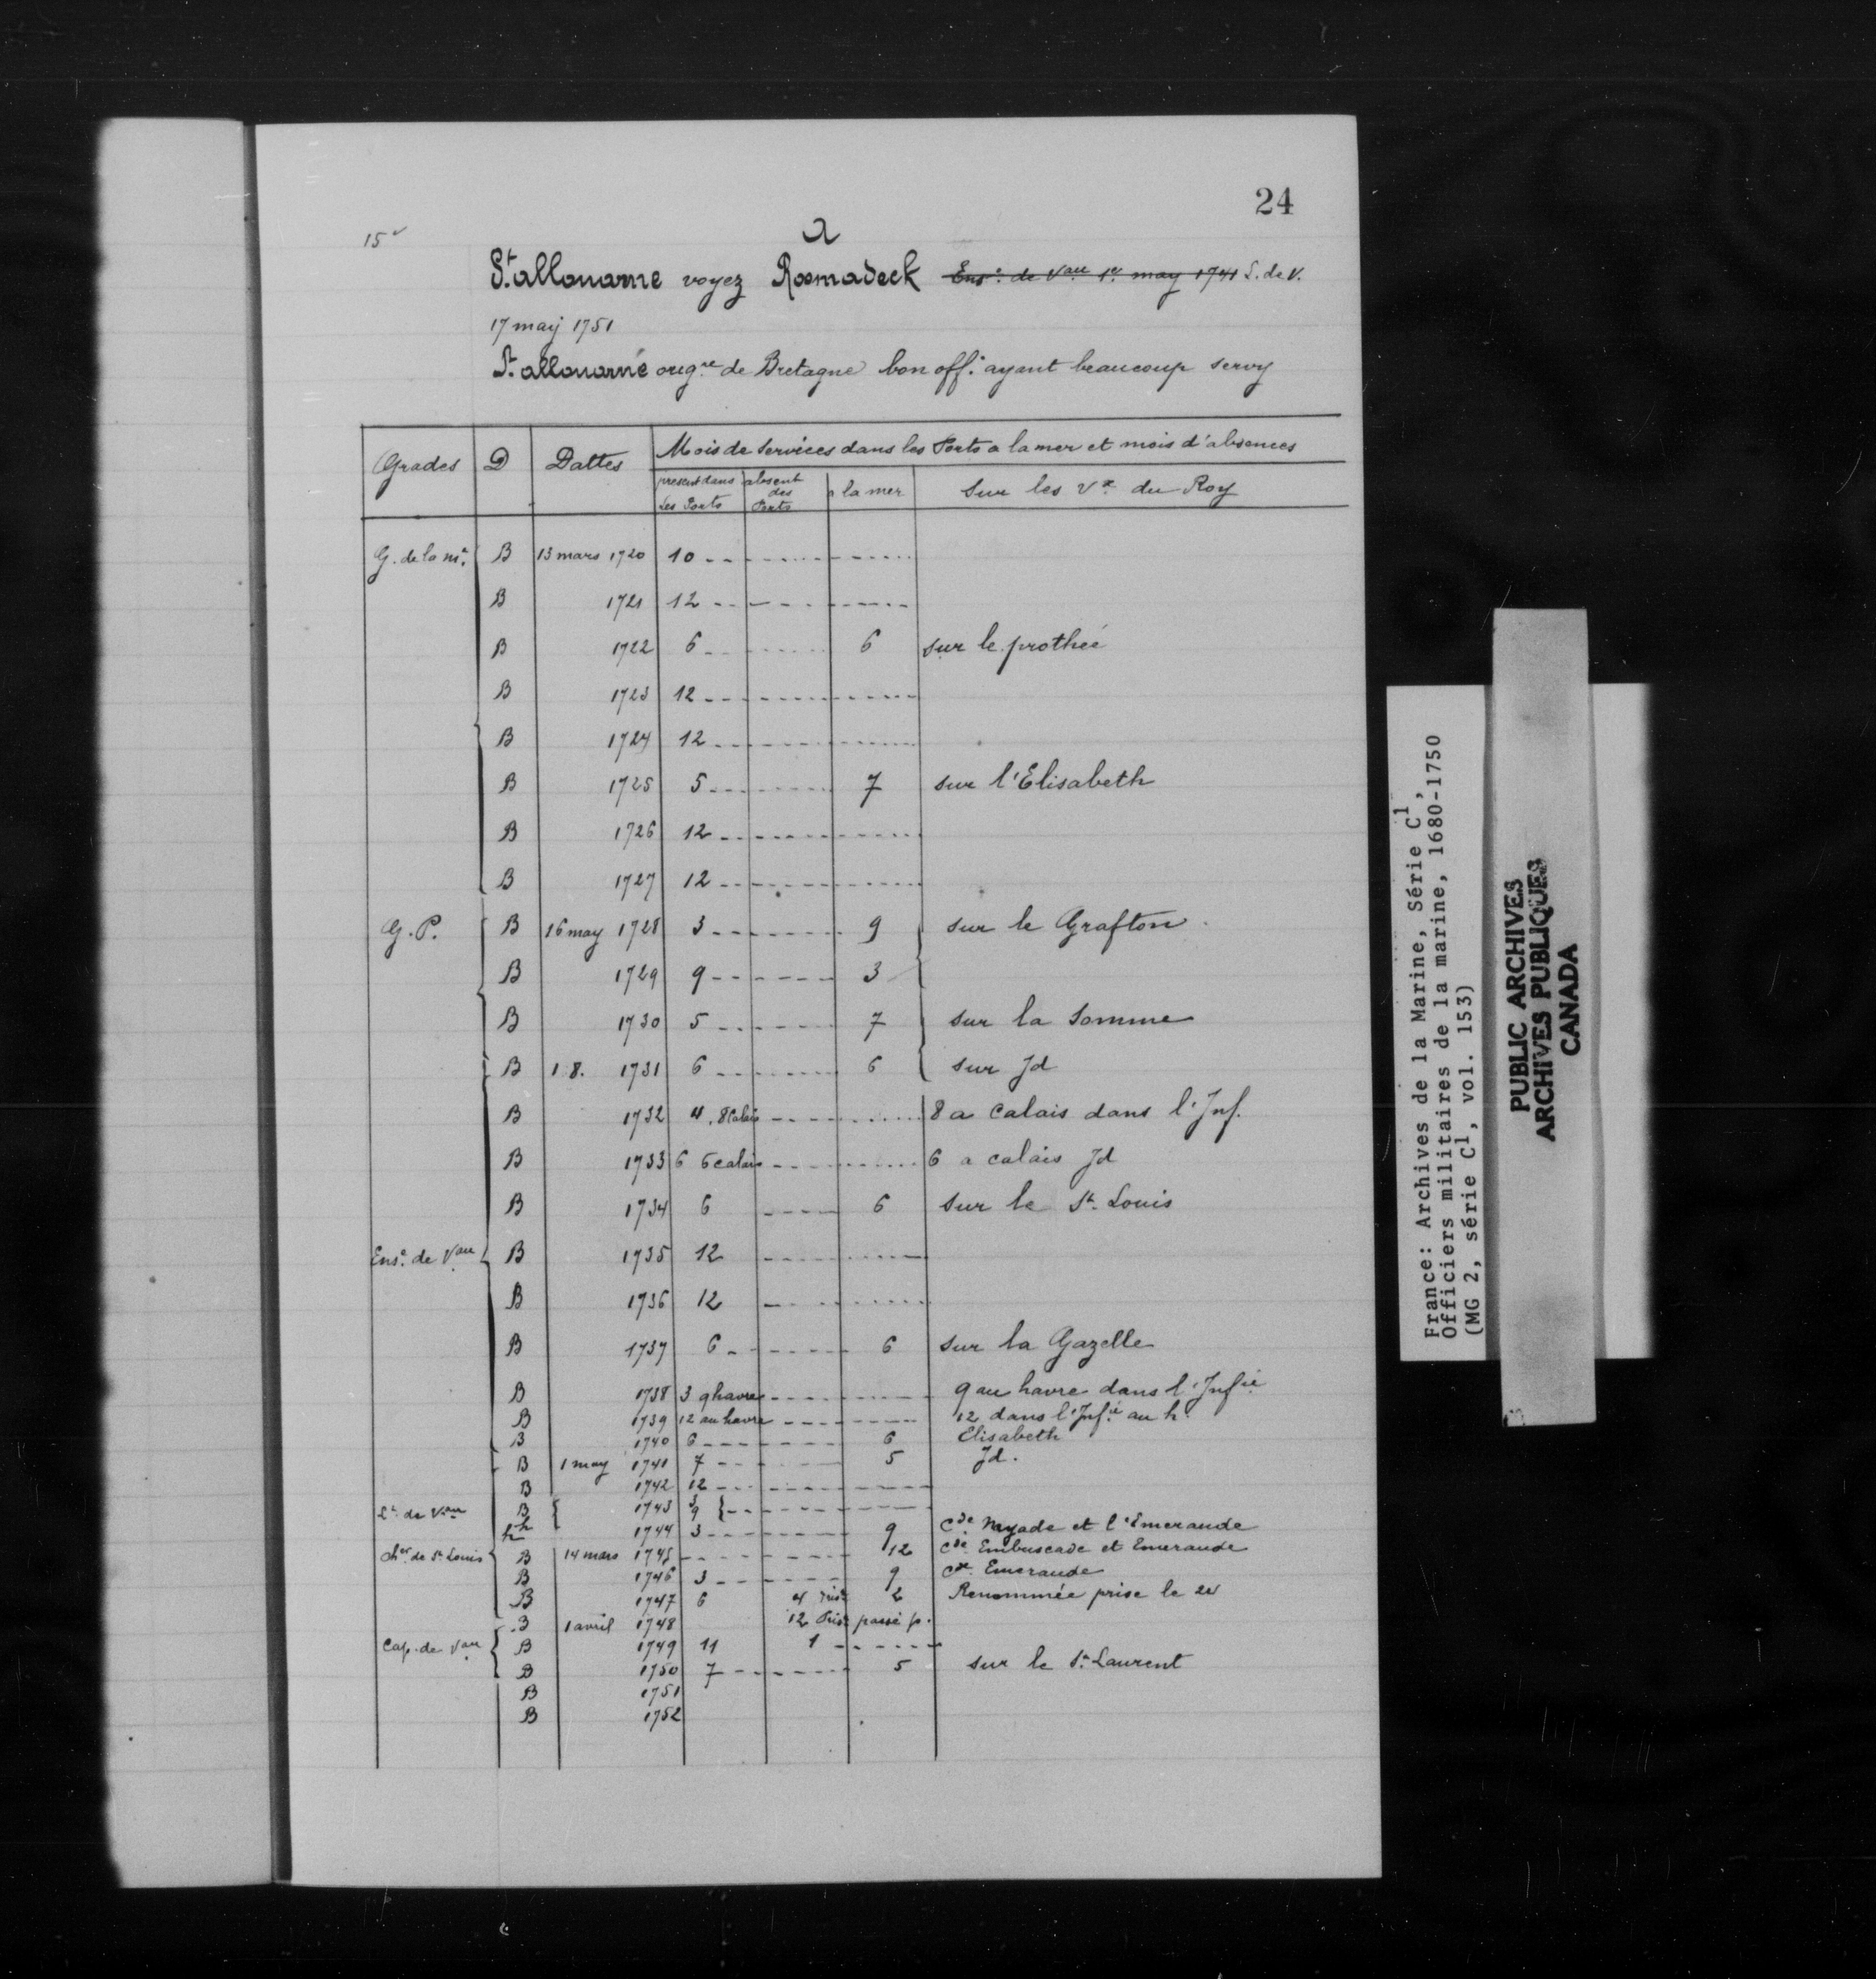 24
15v
a
St. allouarne voyez Rosmadeck Ense. de Vau 1er. may 1741 L. de V.
17 maij 1751
St. allouarné origre de Bretagne bon off. ayant beaucoup servy
Grades D Dattes Mois de Services dans les Ports a la mer et mois d'absences
present dans les Ports absent des Ports a la mer Sur les Vx du Roy
G. de la me. B 13 mars 1720 10
B 1721 12
B 1722 6 6 sur le prothée
B 1723 12
B 1724 12
B 1725 5 7 sur l'Elisabeth
B 1726 12
B 1727 12
G. P. B 16 may 1728 3 9 sur le Grafton
B 1729 9 3
B 1730 5 7 sur la Somme
B 1.8. 1731 6 6 sur Jd
B 1732 4. 8 Calais 8 a Calais dans l'Inf.
B 1733 6 6 calais 6 a calais Jd
B 1734 6 6 sur le St. Louis
Ense. de Vau B 1735 12
B 1736 12
B 1737 6 6 sur la Gazelle
B 1738 3 9 havre 9 au havre dans l'Infie
B 1739 12 au havre 12 dans l'Infie au h.
B 1740 6 6 Elisabeth
B 1 may 1741 7 5 Jd.
B 1742 12
Lt. de Vau B 1743 3 9
1744 3 9 Cde Nayade et l'Emeraude
Cher. de St. Louis B 14 mars 1745 12 Cde Embuscade et Emeraude
B 1746 3 9 Cde Emeraude
B 1747 6 4 Prisr 2 Renommée prise le 24
B 1 avril 1748 12 Prisr passé p.
Cap. de Vau B 1749 11 1
B 1750 7 5 sur le St. Laurent
B 1751
B 1752
France: Archives de la Marine, Série C1,
Officiers militaires de la marine, 1680-1750
(MG 2, série C1, vol. 153)
PUBLIC ARCHIVES
ARCHIVES PUBLIQUES
CANADA